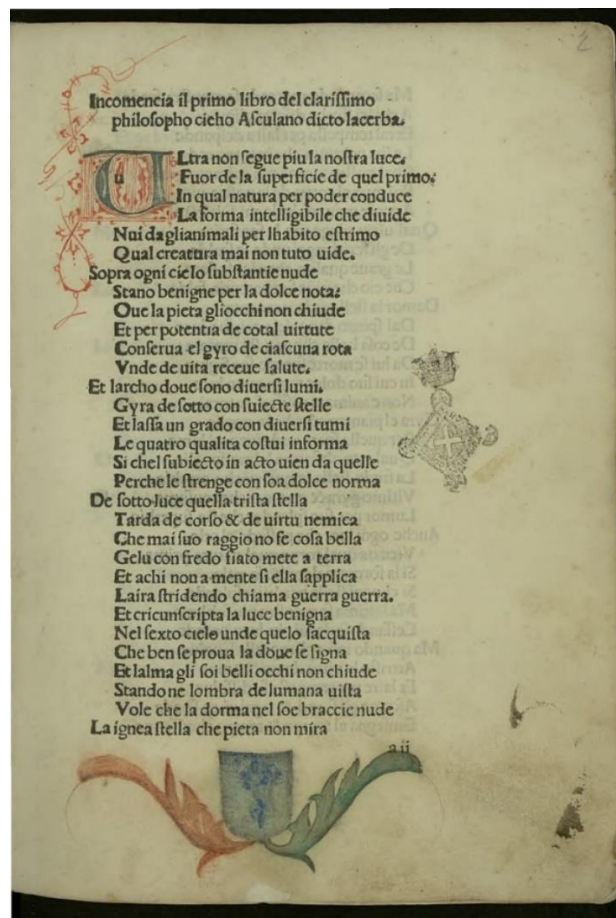 2
Incomencia il primo libro del clarissimo
philosopho cicho Asculano dicto lacerba.
u
ULtra non segue piu la nostra luce.
Fuor de la superficie de quel primo:
In qual natura per poder conduce
La forma intelligibile che diuide
Nui da glianimali per lhabito estrimo
Qual creatura mai non tuto uide.
Sopra ogni cielo substantie nude
Stano benigne per la dolce nota:
Oue la pieta gliocchi non chiude
Et per potentia de cotal uirtute
Conserua el gyro de ciascuna rota
Vnde de uita receue salute.
Et larcho doue sono diuersi lumi.
Gyra de sotto con suiecte stelle
Et lassa un grado con diuersi tumi
Le quatro qualita costui informa
Si chel subiecto in acto uien da quelle
Perche le strenge con soa dolce norma
De sotto luce quella trista stella
Tarda de corso & de uirtu nemica
Che mai suo raggio no fe cosa bella
Gelu con fredo fiato mete a terra
Et achi non a mente si ella sapplica
Laira stridendo chiama guerra guerra.
Et cricunscripta la luce benigna
Nel sexto cielo unde quelo sacquista
Che ben se proua la doue se signa
Et lalma gli soi belli occhi non chiude
Stando ne lombra de lumana uista
Vole che la dorma nel soe braccie nude
La ignea stella che pieta non mira
a ii